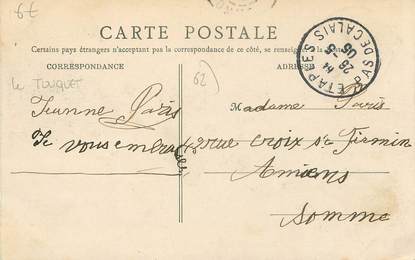 6€
CARTE POSTALE
Certains pays étrangers n'acceptant pas la correspondance de ce côté, se renseigner à la
CORRESPONDANCE
ADRESSE
ETAPLES
PAS DE CALAIS
26
-5
06
Le Touquet
62
Jeanne Paris
Je vous embrasse
Madame Paris
42 rue croix St Firmin
Amiens
Somme